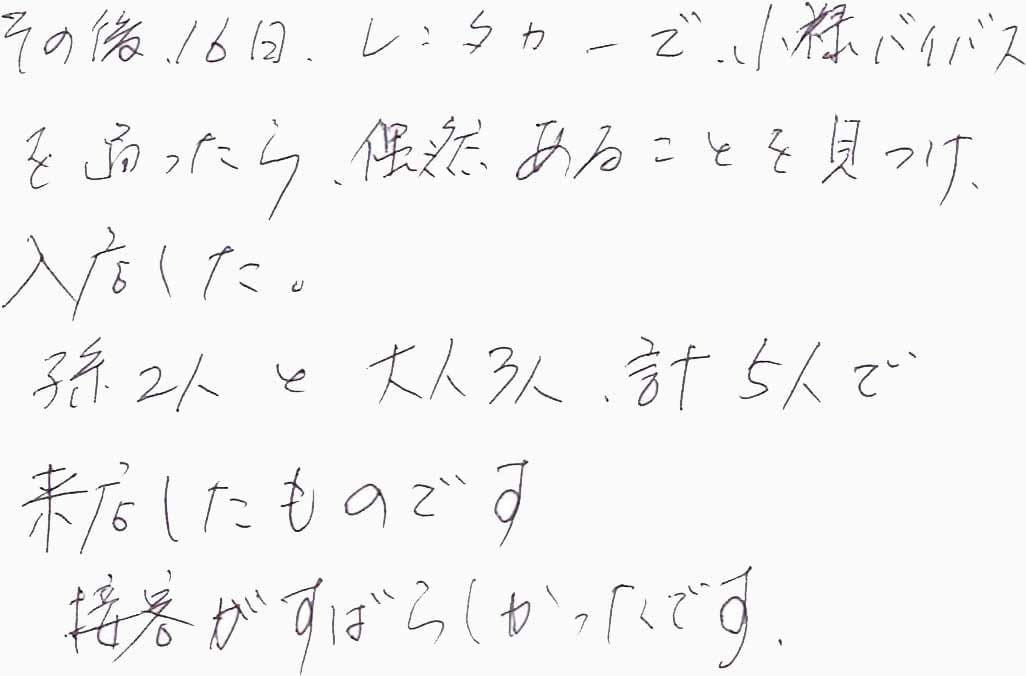 その後、16日、レンタカーで、小禄バイパス
を通ったら、偶然あることを見つけ、
入店した。
孫2人と大人3人、計5人で
来店したものです
接客がすばらしかったです.